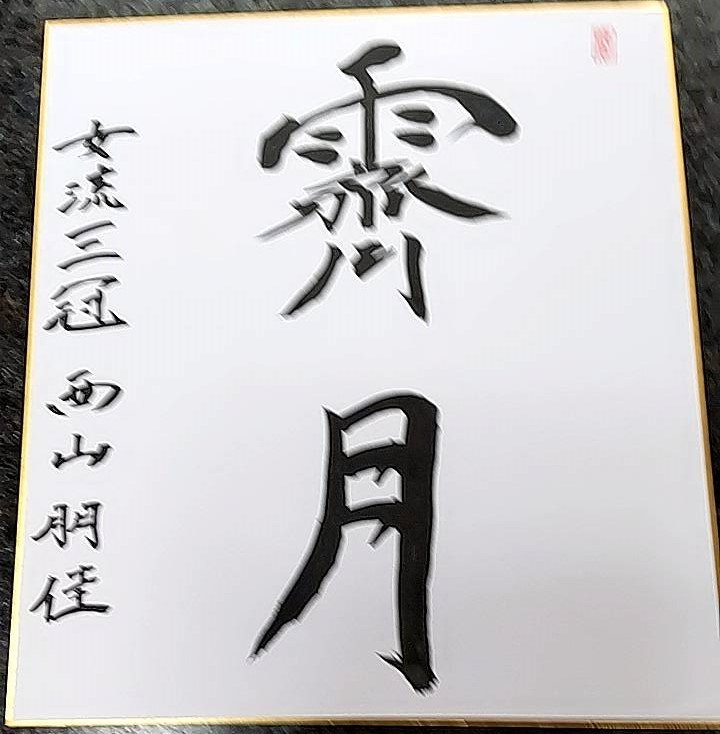 霽月
女流三冠 西山朋佳